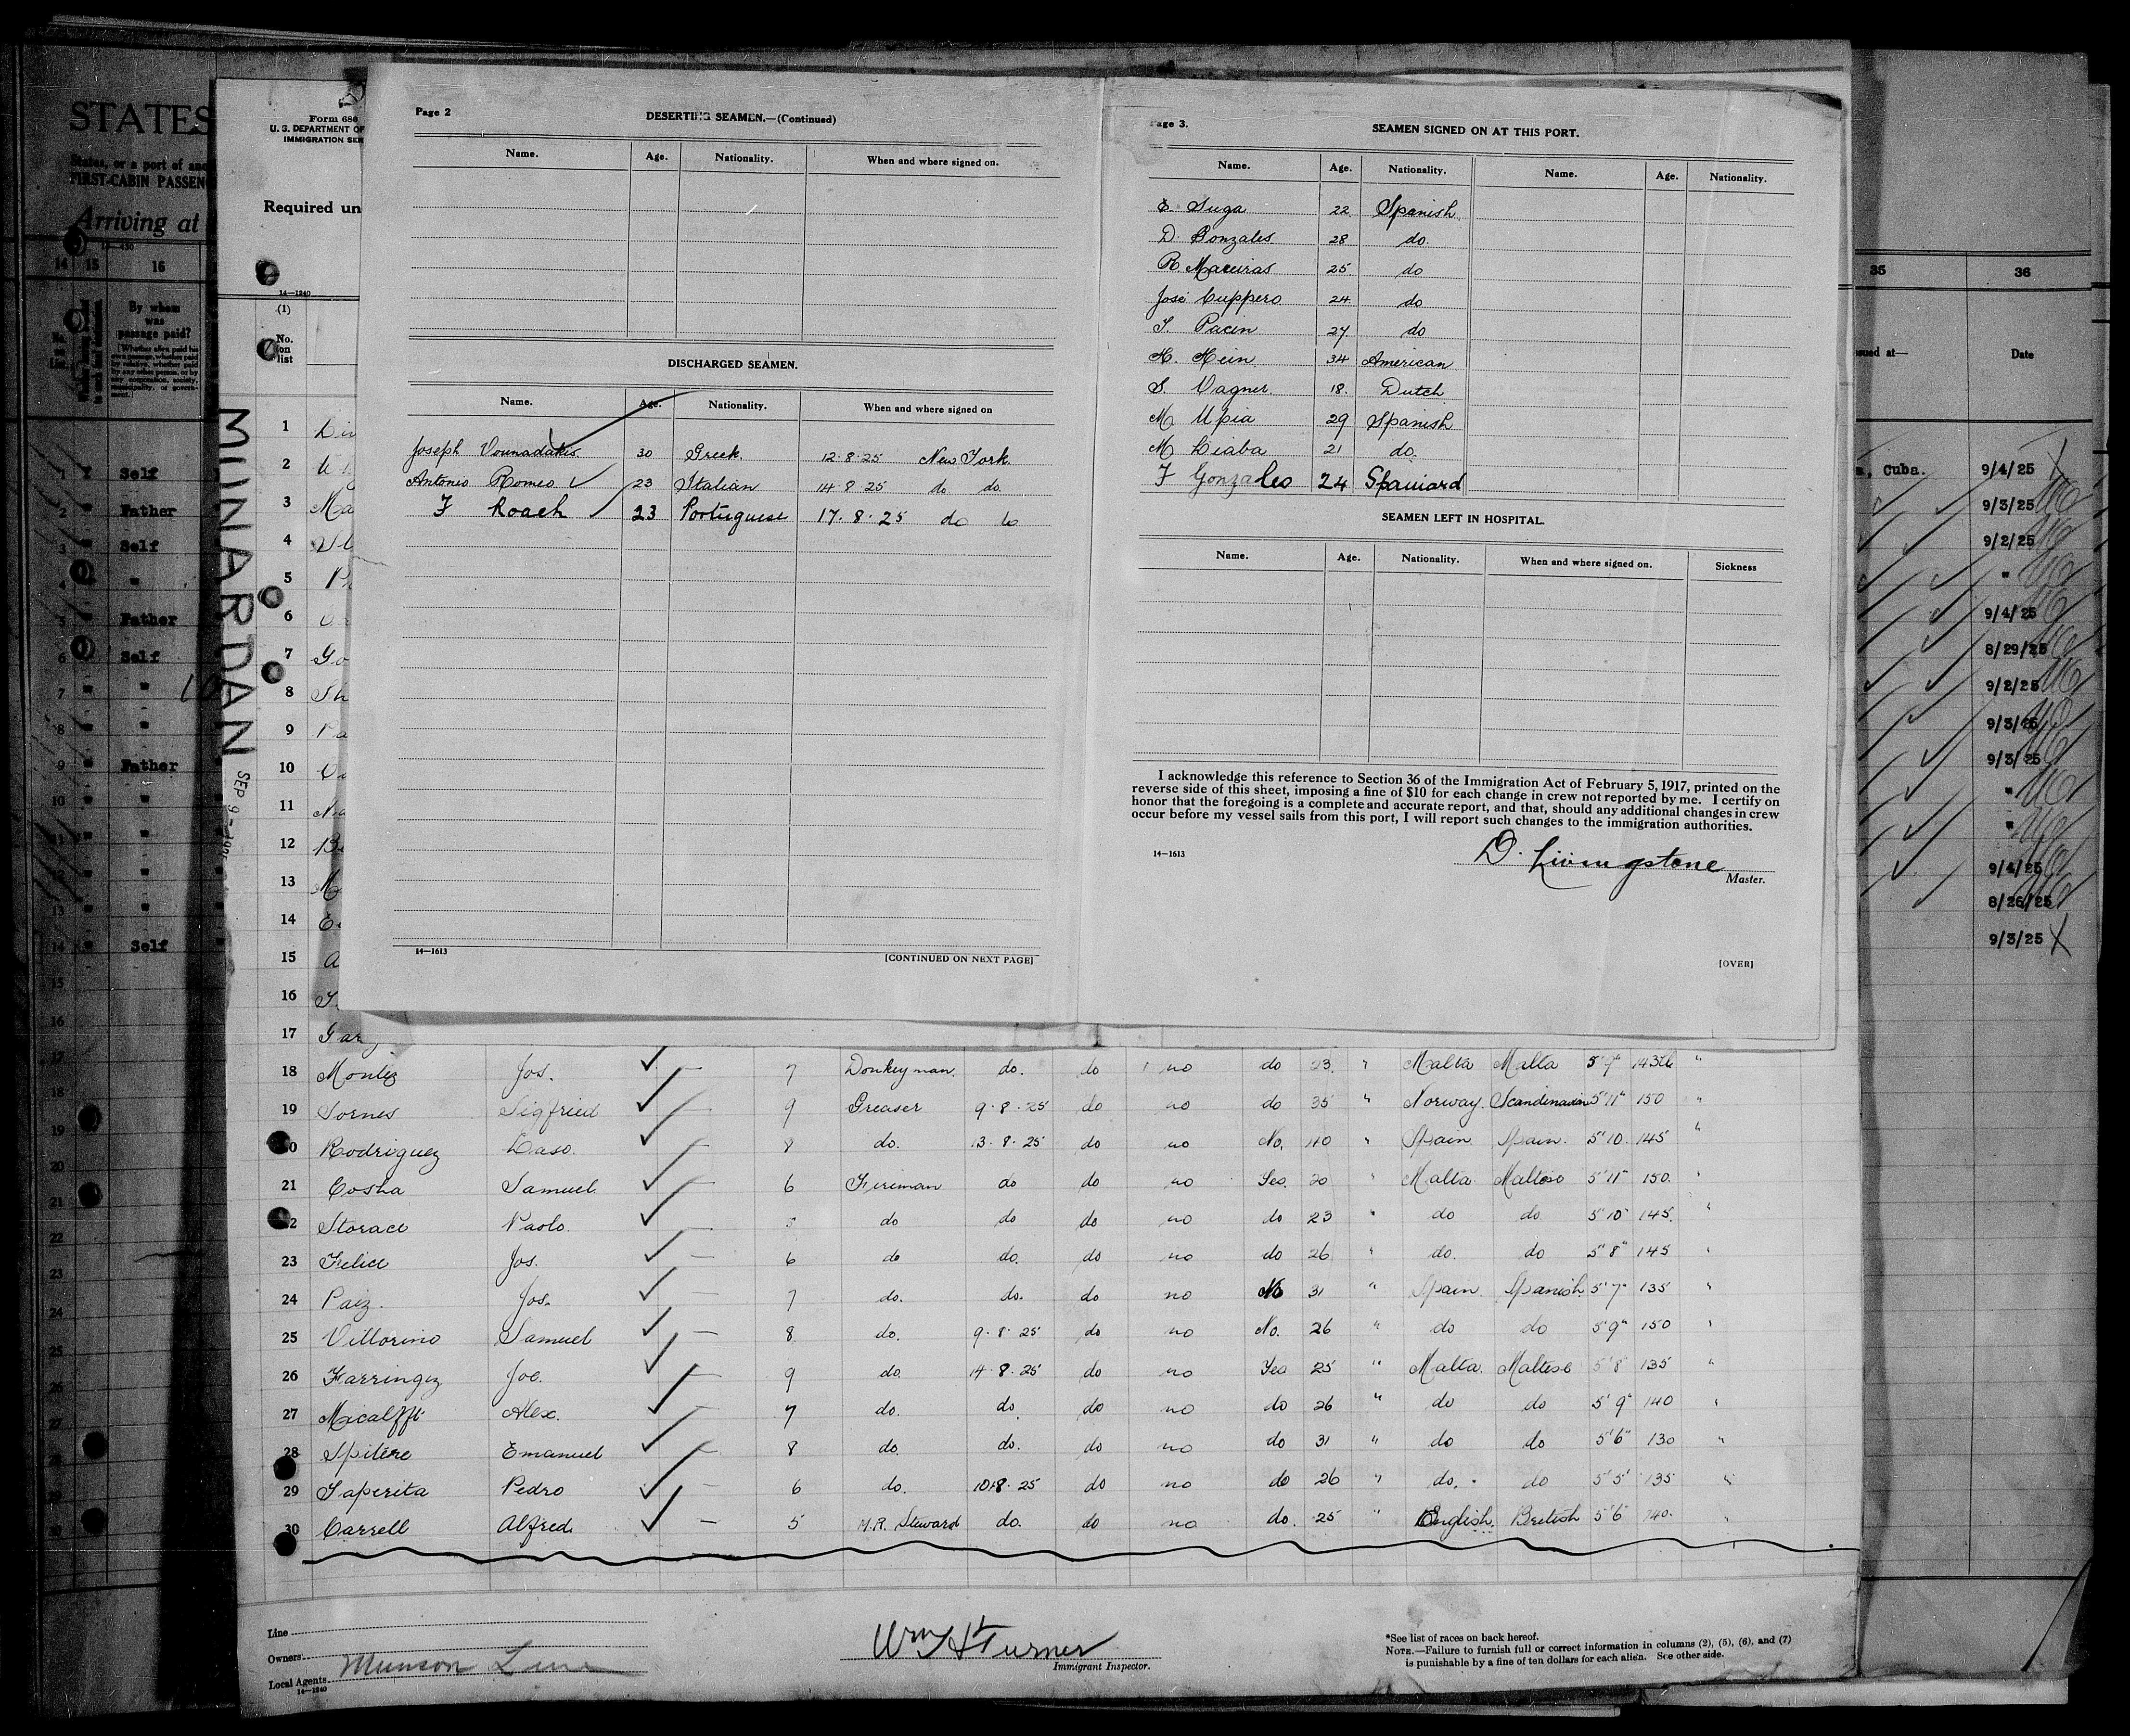 STATES
States, or a port of
FIRST-CABIN PASSEN
Arriving at
14 15 16
By whom was passage paid?
1 Self
2 Father
3 Self
4 "
5 Father
6 Self
7 "
8 "
9 Father
10 "
11 "
12 "
13 "
14 Self
15
16
17
18
19
20
21
22
23
24
25
26
27
28
29
30
Form 680
U. S. DEPARTMENT OF
IMMIGRATION SER
Required un
14—1240
(1)
No. on list
MUNARDAN
SEP 9
Page 2
DESERTING SEAMEN.—(Continued)
Name. Age. Nationality. When and where signed on.
DISCHARGED SEAMEN.
Name. Age. Nationality. When and where signed on
Joseph Vounadakis 30 Greek. 12·8·25 New York.
Antonio Romeo 23 Italian 14 8 25 do do.
F Roach 23 Portuguese 17·8·25 do do
14—1613
[CONTINUED ON NEXT PAGE]
Page 3.
SEAMEN SIGNED ON AT THIS PORT.
Name. Age. Nationality. Name. Age. Nationality.
E. Suga 22 Spanish
D. Gonzales 28 do.
R Maceiras 25 do
José Cuppero 24 do
S. Pacin 27 do
H. Hein 34 American
S. Vagner. 18. Dutch
M Upia 29 Spanish
M Liaba 21 do.
F Gonzales 24 Spaniard
SEAMEN LEFT IN HOSPITAL.
Name. Age. Nationality. When and where signed on. Sickness
I acknowledge this reference to Section 36 of the Immigration Act of February 5, 1917, printed on the
reverse side of this sheet, imposing a fine of $10 for each change in crew not reported by me. I certify on
honor that the foregoing is a complete and accurate report, and that, should any additional changes in crew
occur before my vessel sails from this port, I will report such changes to the immigration authorities.
14—1613
D. Livingstone
Master.
[OVER]
35 36
issued at— Date
Cuba. 9/4/25
9/3/25
9/2/25
"
9/4/25
8/29/25
9/2/25
9/3/25
9/3/25
"
"
9/4/25
8/26/25
9/3/25
1
2
3 Ma
4
5
6
7 Go
8 Sh
9 Pa
10
11
12
13 M
14
15 A
16
17 Gar
18 Montez Jos. 7 Donkeyman. do. do no do 23 " Malta Malta 5'9" 143lb "
19 Sornes Sigfried 9 Greaser 9·8·25 do no do 35 " Norway. Scandinavian 5'11" 150 "
20 Rodriguez Laso. 8 do. 13·8·25 do no No. 40 " Spain Spain. 5'10. 145 "
21 Cosha Samuel. 6 Fireman do do no Yes. 20 " Malta Maltese 5'11" 150. "
22 Storace Paolo. do do do no do 23 " do do 5'10" 145. "
23 Felice Jos. 6 do do. do no do 26 " do. do 5'8" 145 "
24 Paiz. Jos. 7 do. do. do no No 31 " Spain Spanish 5'7" 135 "
25 Villorino Samuel 8 do. 9·8·25 do no No. 26 " do do 5'9" 150 "
26 Farringez Joe. 9 do. 14·8·25 do no Yes 25 " Malta. Maltese 5'8" 135 "
27 Micaleffi Alex. 7 do. do. do no do 26 " do do 5'9" 140 "
28 Spitere Emanuel 8 do. do. do no do 31 " do do 5'6" 130 "
29 Saperita Pedro 6 do. 10·8·25 do no do 26 " do. do 5'5" 135 "
30 Carrell Alfred. 5 M.R. Steward do. do no do. 25 " English. British 5'6" 140. "
Line
Owners
Munson Line
Local Agents
14—1240
Wm H Turner
Immigrant Inspector.
*See list of races on back hereof.
NOTE.—Failure to furnish full or correct information in columns (2), (5), (6), and (7)
is punishable by a fine of ten dollars for each alien. See other side.